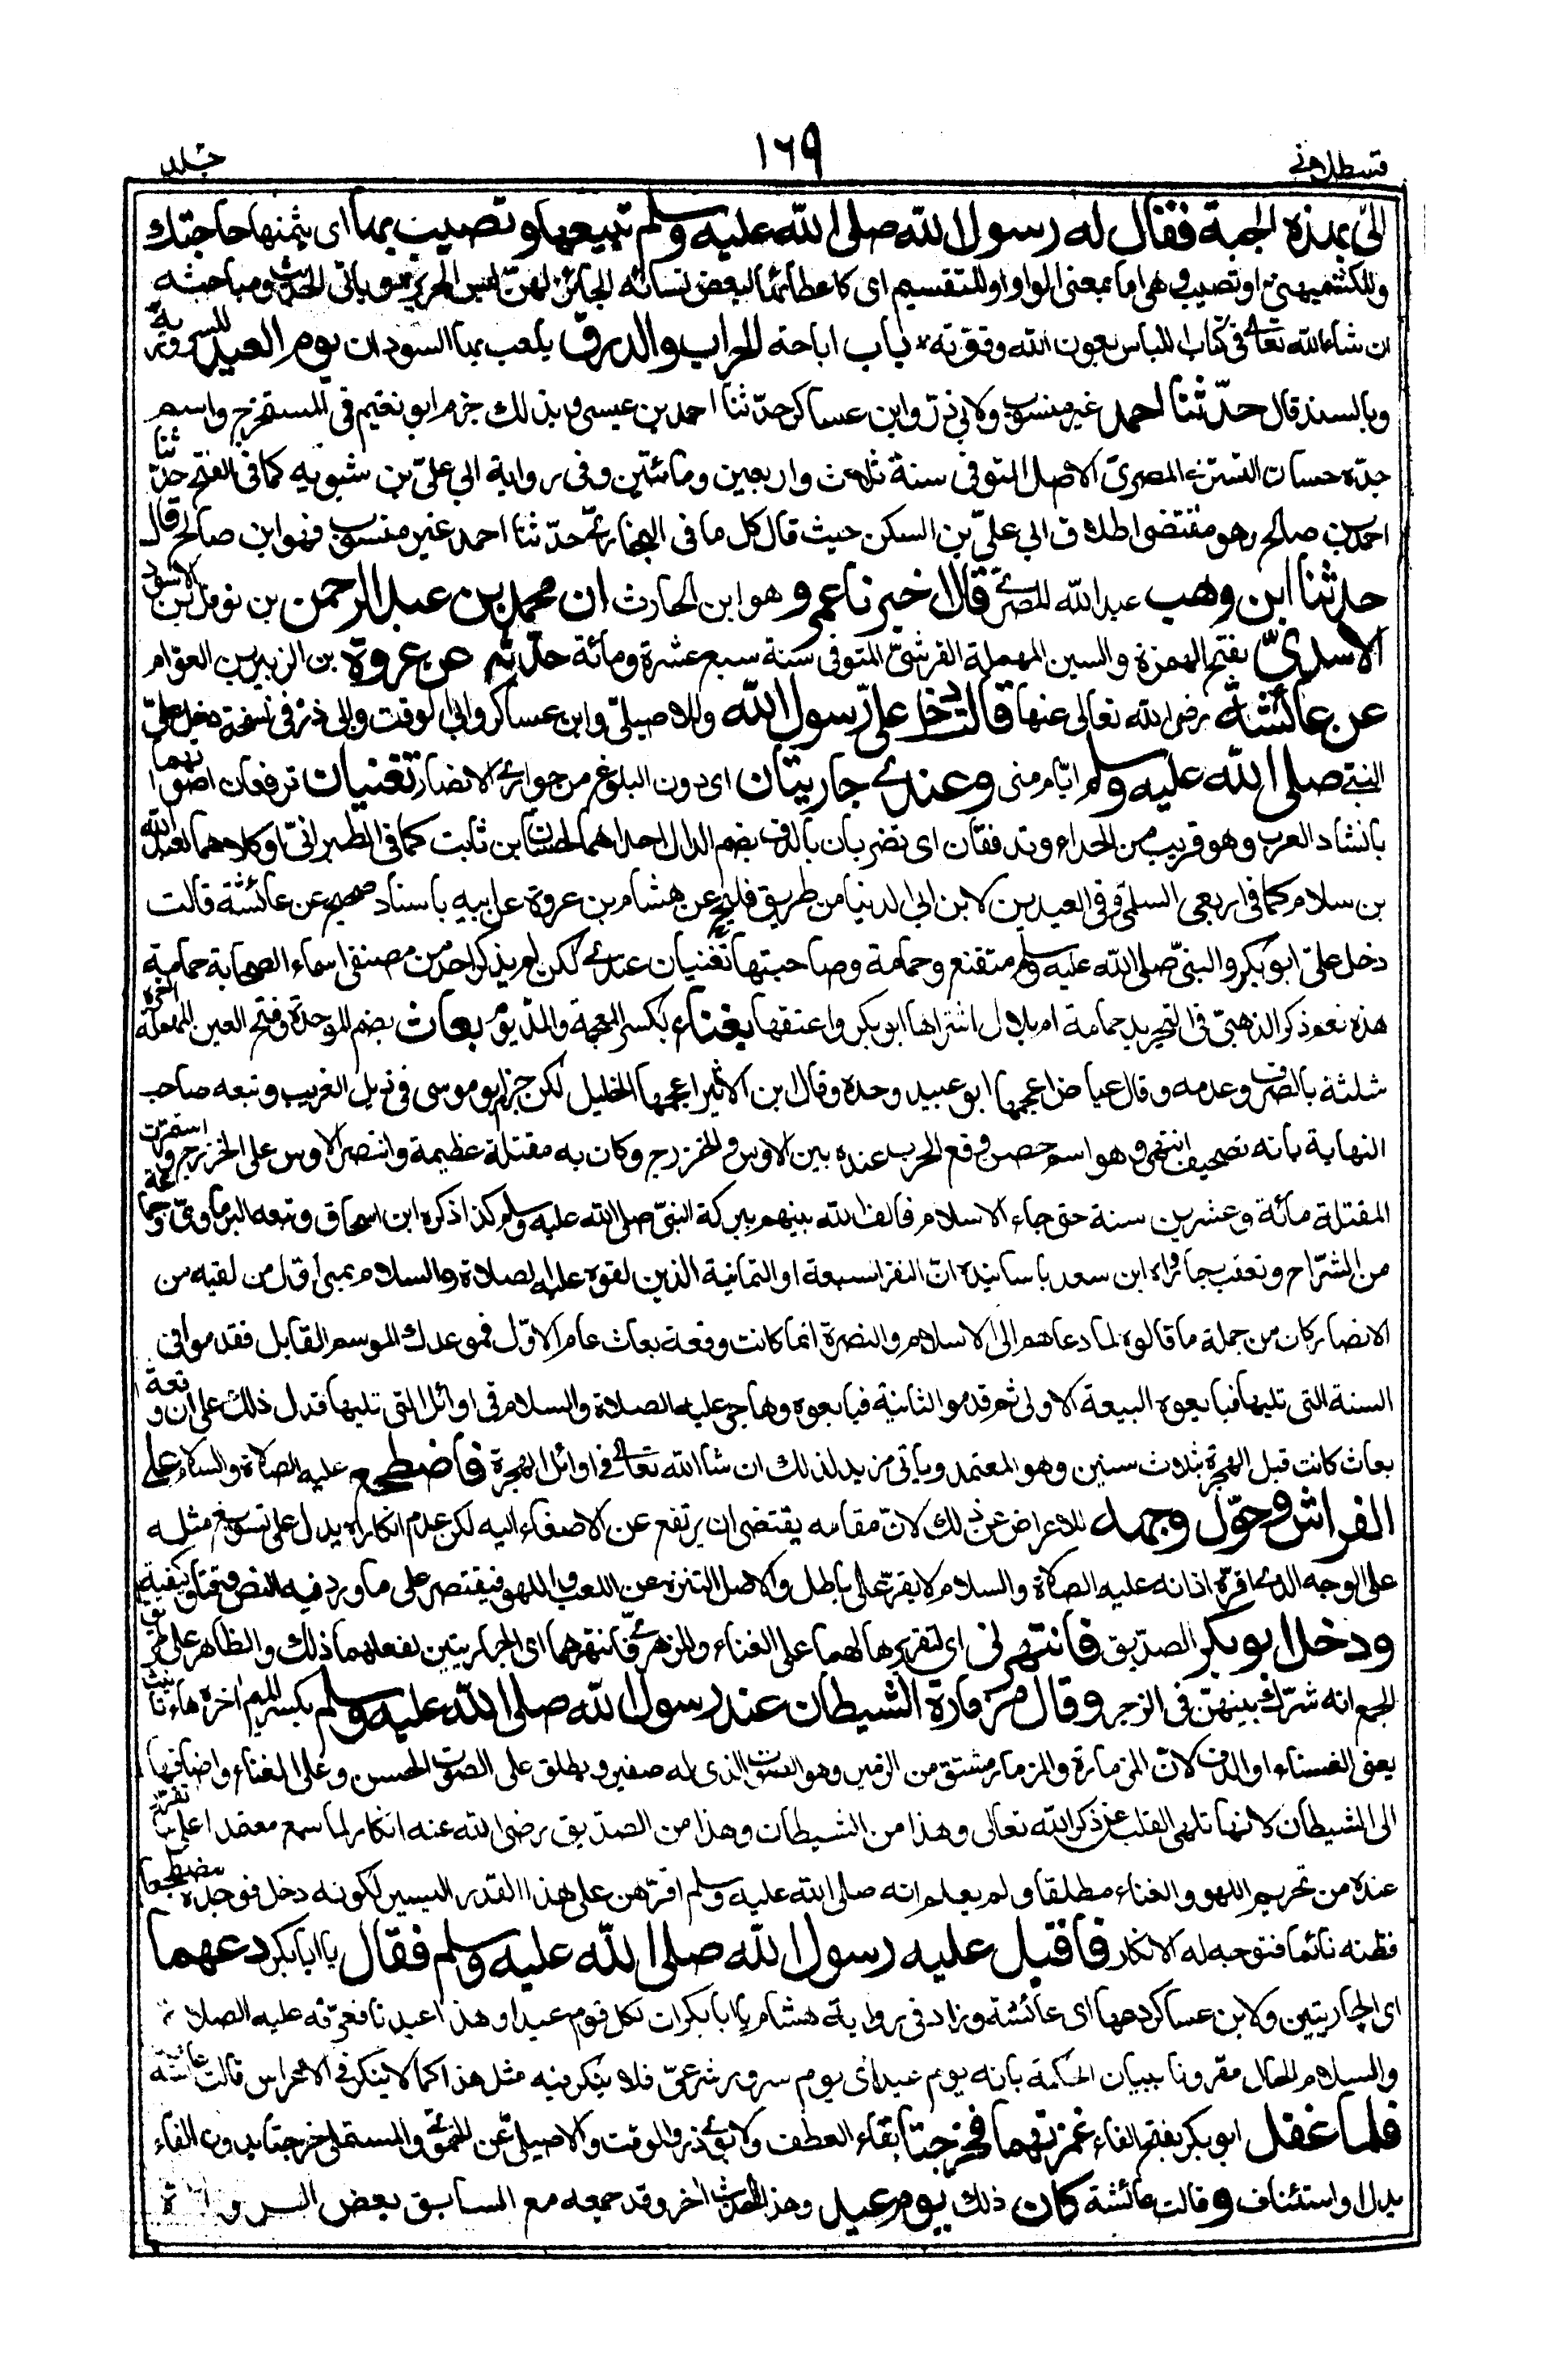 قسطلانی
١٦٩
جلد
الیّ بهذه الجبة فقال له رسول الله صلى الله عليه وسلم تبيعها وتصيب بها اى بثمنها حاجتك
وللكشميهنى او تصيب وهى اما بمعنى الواو او للتقسيم اى كاعطائها لبعض نسائه الجائز لهن لبس الحرير وياتى الحديث ومباحثه
ان شاء الله تعالى فى كتاب اللباس بعون الله وقوته باب اباحة الحراب والدرق يلعب بها السودان يوم العيد للسرور به
وبالسند قال حدّثنا احمد غير منسوب ولابى ذرّ وابن عساكر حدّثنا احمد بن عيسى وبذلك جزم ابو نعيم فى المستخرج واسم
جدّه حسان التسترى المصرىّ الاصل المتوفى سنة ثلاث واربعين ومائتين وفى رواية ابى علىّ بن شبويه كما فى الفتح حدّثنا
احمد بن صالح وهو مقتضى اطلاق ابى علىّ بن السكن حيث قال كل ما فى البخارى حدّثنا احمد غير منسوب فهو ابن صالح قال
حدثنا ابن وهب عبد الله المصرى قال اخبرنا عمرو هو ابن الحارث ان محمد بن عبد الرحمن بن نوفل بن الاسود
الاسدىّ بفتح الهمزة والسين المهملة القرشىّ المتوفى سنة سبع عشرة ومائة حدّثه عن عروة بن الزبير بن العوّام
عن عائشة رضى الله تعالى عنها قالت دخل علىّ رسول الله وللاصيلىّ وابن عساكر وابى الوقت وابى ذر فى نسخة دخل علىّ
النبى صلى الله عليه وسلم ايّام منى وعندى جاريتان اى دون البلوغ من جوارى الانصار تغنيان ترفعان اصواتهما
بانشاد العرب وهو قريب من الحداء وتدففان اى تضربان بالدف بضم الدال احداهما لحسان بن ثابت كما فى الطبرانىّ او كلاهما لعبد الله
بن سلام كما فى اربعى السلمىّ وفى العيدين لابن ابى الدنيا من طريق فليح عن هشام بن عروة عن ابيه باسناد صحيح عن عائشة قالت
دخل علىّ ابو بكر والنبىّ صلى الله عليه وسلم متقنع وحمامة وصاحبتها تغنيان عندى لكن لم يذكر احد من مصنفى اسماء الصحابة حمامة
هذه نعم ذكر الذهبىّ فى التجريد حمامة ام بلال اشتراها ابو بكر واعتقها بغناء بكسر المعجمة والمدّ يوم بعاث بضم الموحدة وفتح العين المهملة اخره
مثلثة بالصرف وعدمه وقال عياض اعجمها ابو عبيد وحده وقال ابن الاثير اعجمها الخليل لكن جزم ابو موسى فى ذيل الغريب وتبعه صاحب
النهاية بانه تصحيف انتهى وهو اسم حصن وقع الحرب عنده بين الاوس والخزرج وكان به مقتلة عظيمة وانتصر الاوس على الخزرج واستمرت
المقتلة مائة وعشرين سنة حتى جاء الاسلام فالف الله بينهم ببركة النبىّ صلى الله عليه وسلم كذا ذكره ابن اسحاق وتبعه البرماوىّ وجماعة
من الشرّاح وتعقب بما رواه ابن سعد باسانيده انّ النفر السبعة او الثمانية الذين لقوه عليه الصلاة والسلام بمنى اوّل من لقيه من
الانصار كان من جملة ما قالوه لما دعاهم الى الاسلام والنصرة انما كانت وقعة بعاث عام الاوّل فموعدك الموسم القابل فقدموا فى
السنة التى تليها فبايعوه البيعة الاولى ثم قدموا الثانية فبايعوه وهاجر عليه الصلاة والسلام فى اوائل التى تليها فدل ذلك على ان وقعة
بعاث كانت قبل الهجرة بثلاث سنين وهو المعتمد وياتى مزيد لذلك ان شاالله تعالى فى اوائل الهجرة فاضطجع عليه الصلاة والسلام على
الفراش وحوّل وجهه للاعراض عن ذلك لانّ مقامه يقتضى ان يرتفع عن الاصغاء اليه لكن عدم انكاره يدل على تسويغ مثله
على الوجه الذى اقره اذ انه عليه الصلاة والسلام لا يقرّ على باطل والاصل التنزه عن اللعب واللهو فيقتصر على ما ورد فيه النص وقتا وكيفية
ودخل ابو بكر الصدّيق فانتهرنى اى لتقريرها لهما على الغناء وللزهرى فانتهرهما اى الجاريتين لفعلهما ذلك والظاهر على طريق
الجمع انه شرّك بينهنّ فى الزجر وقال مزمارة الشيطان عند رسول الله صلى الله عليه وسلم بكسر الميم اخره هاء تانيث
يعنى الغناء او الدف لانّ المزمارة والمزمار مشتق من الزمير وهو الصوت الذى له صفير ويطلق على الصوت الحسن وعلى الغناء واضافها
الى الشيطان لانها تلهى القلب عن ذكر الله تعالى وهذا من الشيطان وهذا من الصدّيق رضى الله عنه انكار لما سمع معتمدا على ما تقرّر
عنده من تحريم اللهو والغناء مطلقا ولم يعلم انه صلى الله عليه وسلم اقرّهن على هذا القدر اليسير لكونه دخل فوجده مضطجعا
فظنه نائما فتوجه له الانكار فاقبل عليه رسول الله صلى الله عليه وسلم فقال يا ابا بكر دعهما
اى الجاريتين ولابن عساكر دعها اى عائشة وزاد فى رواية هشام يا ابا بكر ان لكل قوم عيدا وهذا عيدنا فعرّفه عليه الصلا
والسلام الحال مقرونا ببيان الحكمة بانه يوم عيد اى يوم سرور شرعىّ فلا ينكر فيه مثل هذا كما لا ينكر فى الاعراس قالت عائشة
فلما غفل ابو بكر بفتح الفاء غمزتهما فخرجتا بفاء العطف ولابى ذر والوقت والاصيلىّ عن الحموى والمستملى خرجتا بدون الفاء
بدل او استئناف وقالت عائشة كان ذلك يوم عيد وهذا الحديث اخر وقد جمعه مع السابق بعض الر و